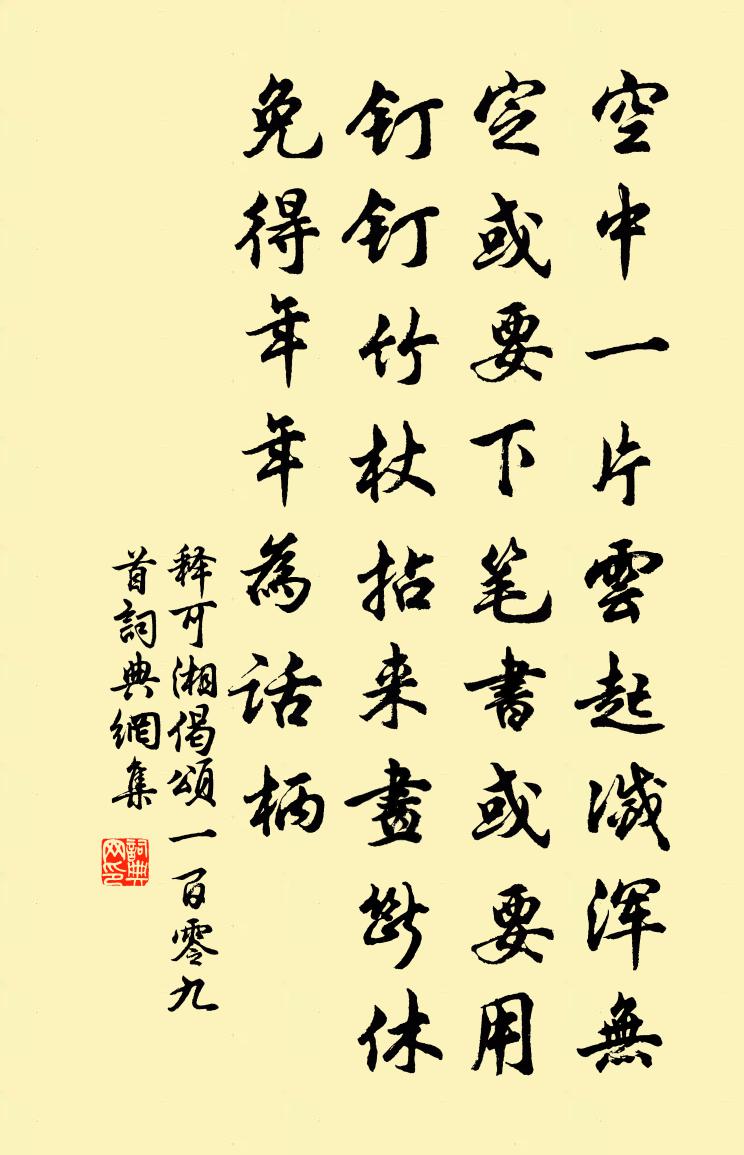 空中一片雲起滅浑無
定或要下笔書或要用
钉钉竹杖拈来畫断休
免得年年為话柄
释可湘偈頌一百零九
首詞典網集
詞典网印